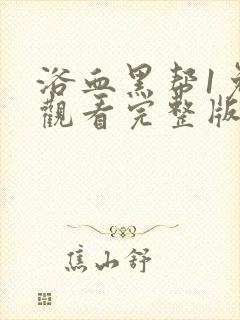 浴血黑帮1免
觀看完整版
焦山舒